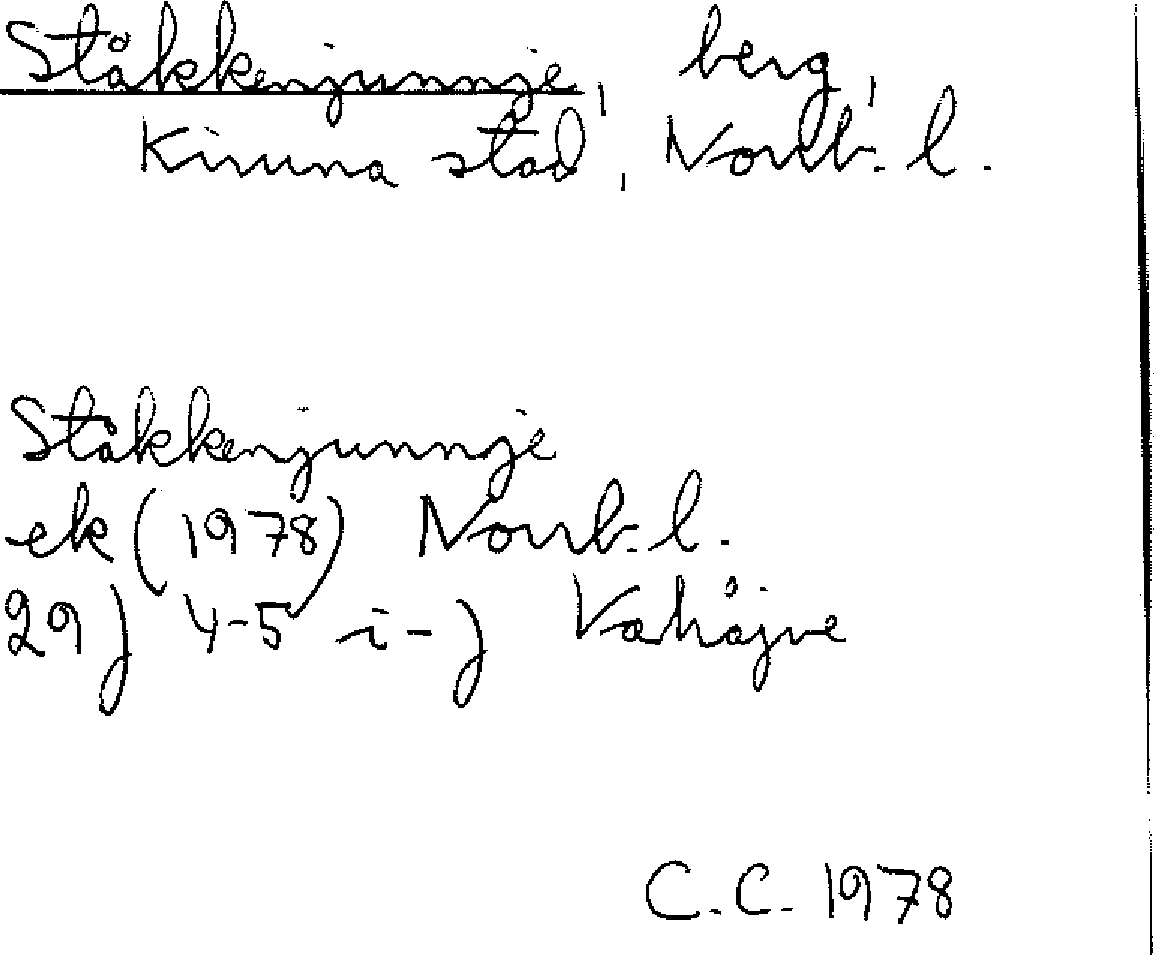 Ståkkenjunnje, berg,
Kiruna stad, Norrb. l.
Ståkkenjunnje
ek (1978) Norrb. l.
29J 4-5 i-j Kahåjve
C.C. 1978